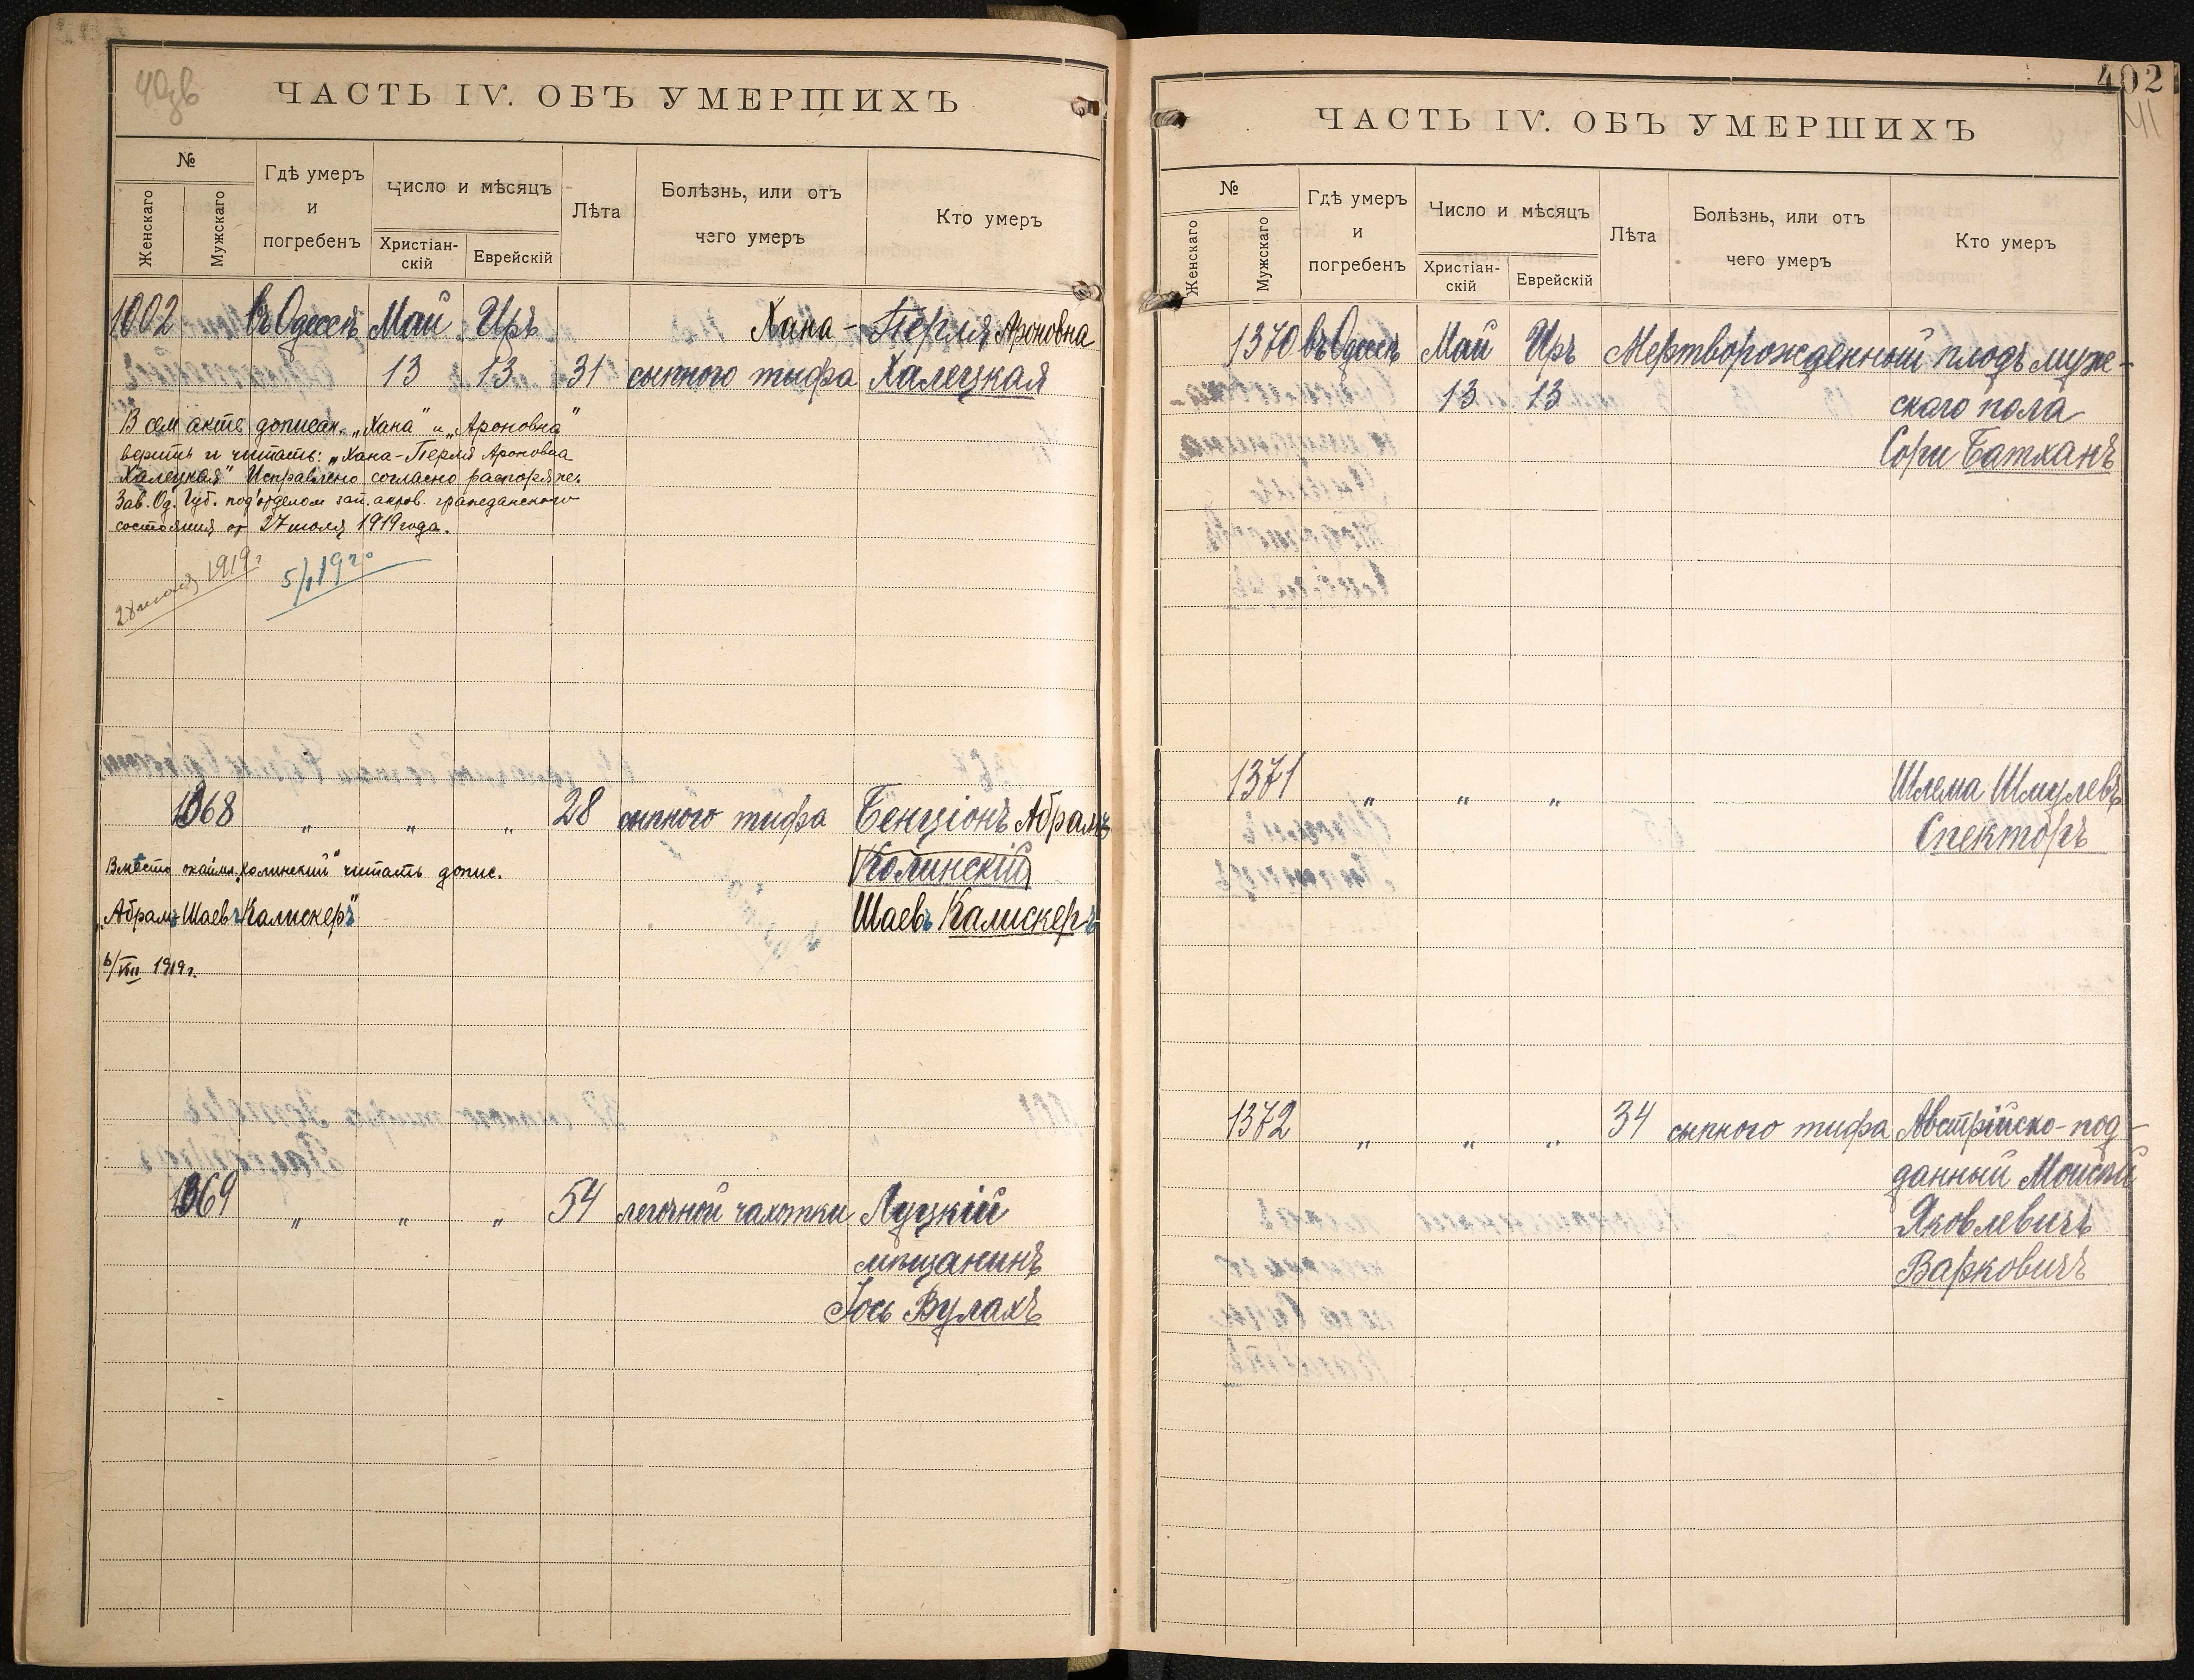 ЧАСТЬ IV. ОБЪ УМЕРШИХЪ
№
Женскаго
Мужскаго
Гдѣ умеръ
и
погребенъ
Число и мѣсяцъ
Христіан-
скій
Еврейскій
Лѣта
Болѣзнь, или отъ
чего умеръ
Кто умеръ
1002 въ Одессѣ Май Иръ Хана- Перля Ароновна
13 13 31 сыпного тифа Халецкая
В сем акте дописан. „Хана" и „Ароновна"
верить и читать: „Хана-Перля Ароновна
Халецкая" Исправлено согласно распоряже.
Зав. Од. Губ. под'отделом зап. актов. гражданского
состояния от 27 июля 1919 года.
28 июля 1919 г
1368 „ „ „ 28 сыпного тифа Бенціонъ Абрамъ
Колинскій
Вместо окаймл. „Колинский" читать допис.
„Абрамъ-Шаевъ Калискеръ"
Шаевъ Калискеръ
6/VIII 1919 г.
1369 „ „ „ 54 легочной чахотки Луцкій
мѣщанинъ
Іось Вулахъ
402
41
ЧАСТЬ IV. ОБЪ УМЕРШИХЪ
№
Женскаго
Мужскаго
Гдѣ умеръ
и
погребенъ
Число и мѣсяцъ
Христіан-
скій
Еврейскій
Лѣта
Болѣзнь, или отъ
чего умеръ
Кто умеръ
1370 въ Одессѣ Май Иръ Мертворожденный плодъ муже-
13 13 скаго пола
Сори Батханъ
1371 „ „ „ Шлема Шмулевъ
Спекторъ
1372 „ „ „ 34 сыпного тифа Австрійско-под-
данный Моисей
Яковлевичъ
Варковичъ